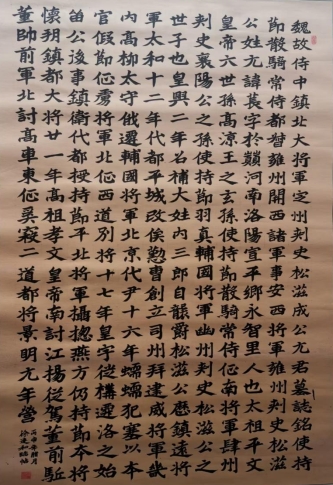 魏故侍中鎮北大將軍定州刾史松滋成公元君墓誌銘使持
節散騎常侍都督雍州開西諸軍事安西將軍雍州刾史松滋
公姓元諱萇字於巔河南洛陽宣平鄉永智里人也太祖平文
皇帝六世孫高涼王之玄孫使持節散騎常侍征南將軍肆州
刾史襄陽公之孫使持節羽真輔國將軍幽州刾史松滋公之
世子也皇興二年召補大姓內三郎自襲爵松滋公歷鎮遠將
軍太和十二年代都平城改俟懃曹創立司州拜建威將軍畿
內高柳太守俄遷輔國將軍北京代尹十六年蠕蠕犯塞以本
官假節征虜將軍北征西道別將十七年皇宇徙構遷洛之始
留公後事鎮衛代都授持節平北將軍攝揔燕方仍持節本將
懷朔鎮都大將廿一年高祖孝文皇帝南討江揚從駕董前駈
董帥前軍北討高車東征奚寇二道都將景明元年營
丙申年腊月